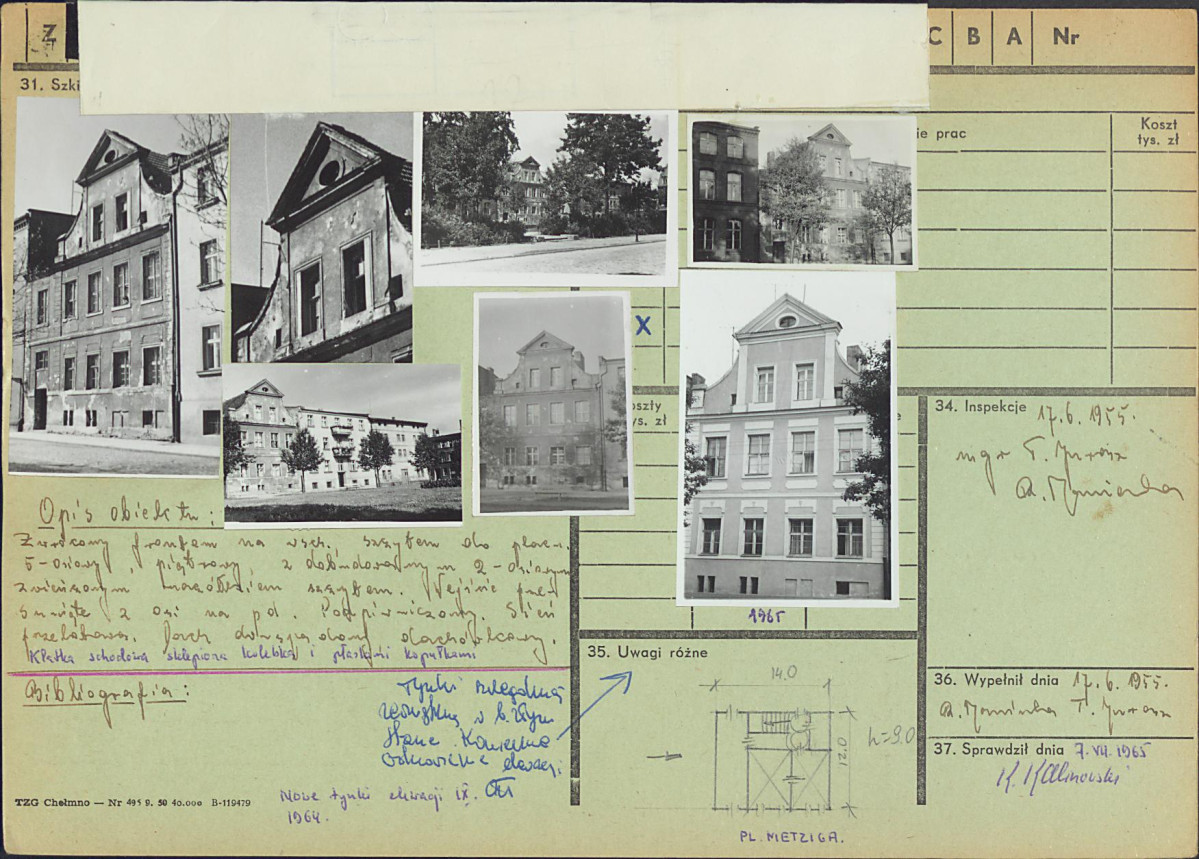 Z
C B A Nr
31. Szki
ie prac
Koszt
tys. zł
X
oszty
ys. zł
34. Inspekcje
17.6.1955.
mgr T.
Opis obiektu:
Zwrócony frontem na wsch. szczytem do placu.
5-osiowy, piętrowy, z dobudowanym 2-osiowym
zwieńczonym szczytem. Wejście
z osi na pd. Podpiwniczony. Sień
przelotowa. Dach dwuspadowy dachówkowy.
Klatka schodowa sklepiona kolebką i płaskimi kopułkami
1965
Bibliografia:
35. Uwagi różne
14.0
12.0
h=9.0
PL. METZIGA.
36. Wypełnił dnia 17.6.1955.
T.
37. Sprawdził dnia 7.VII.1965
K. Kalinowski
Tynki
w b. złym
stanie. Konieczne
odnowienie elewacji
TZG Chełmno — Nr 495 9. 50 40.000 B-119479
Nowe tynki elewacji IX.
1964.